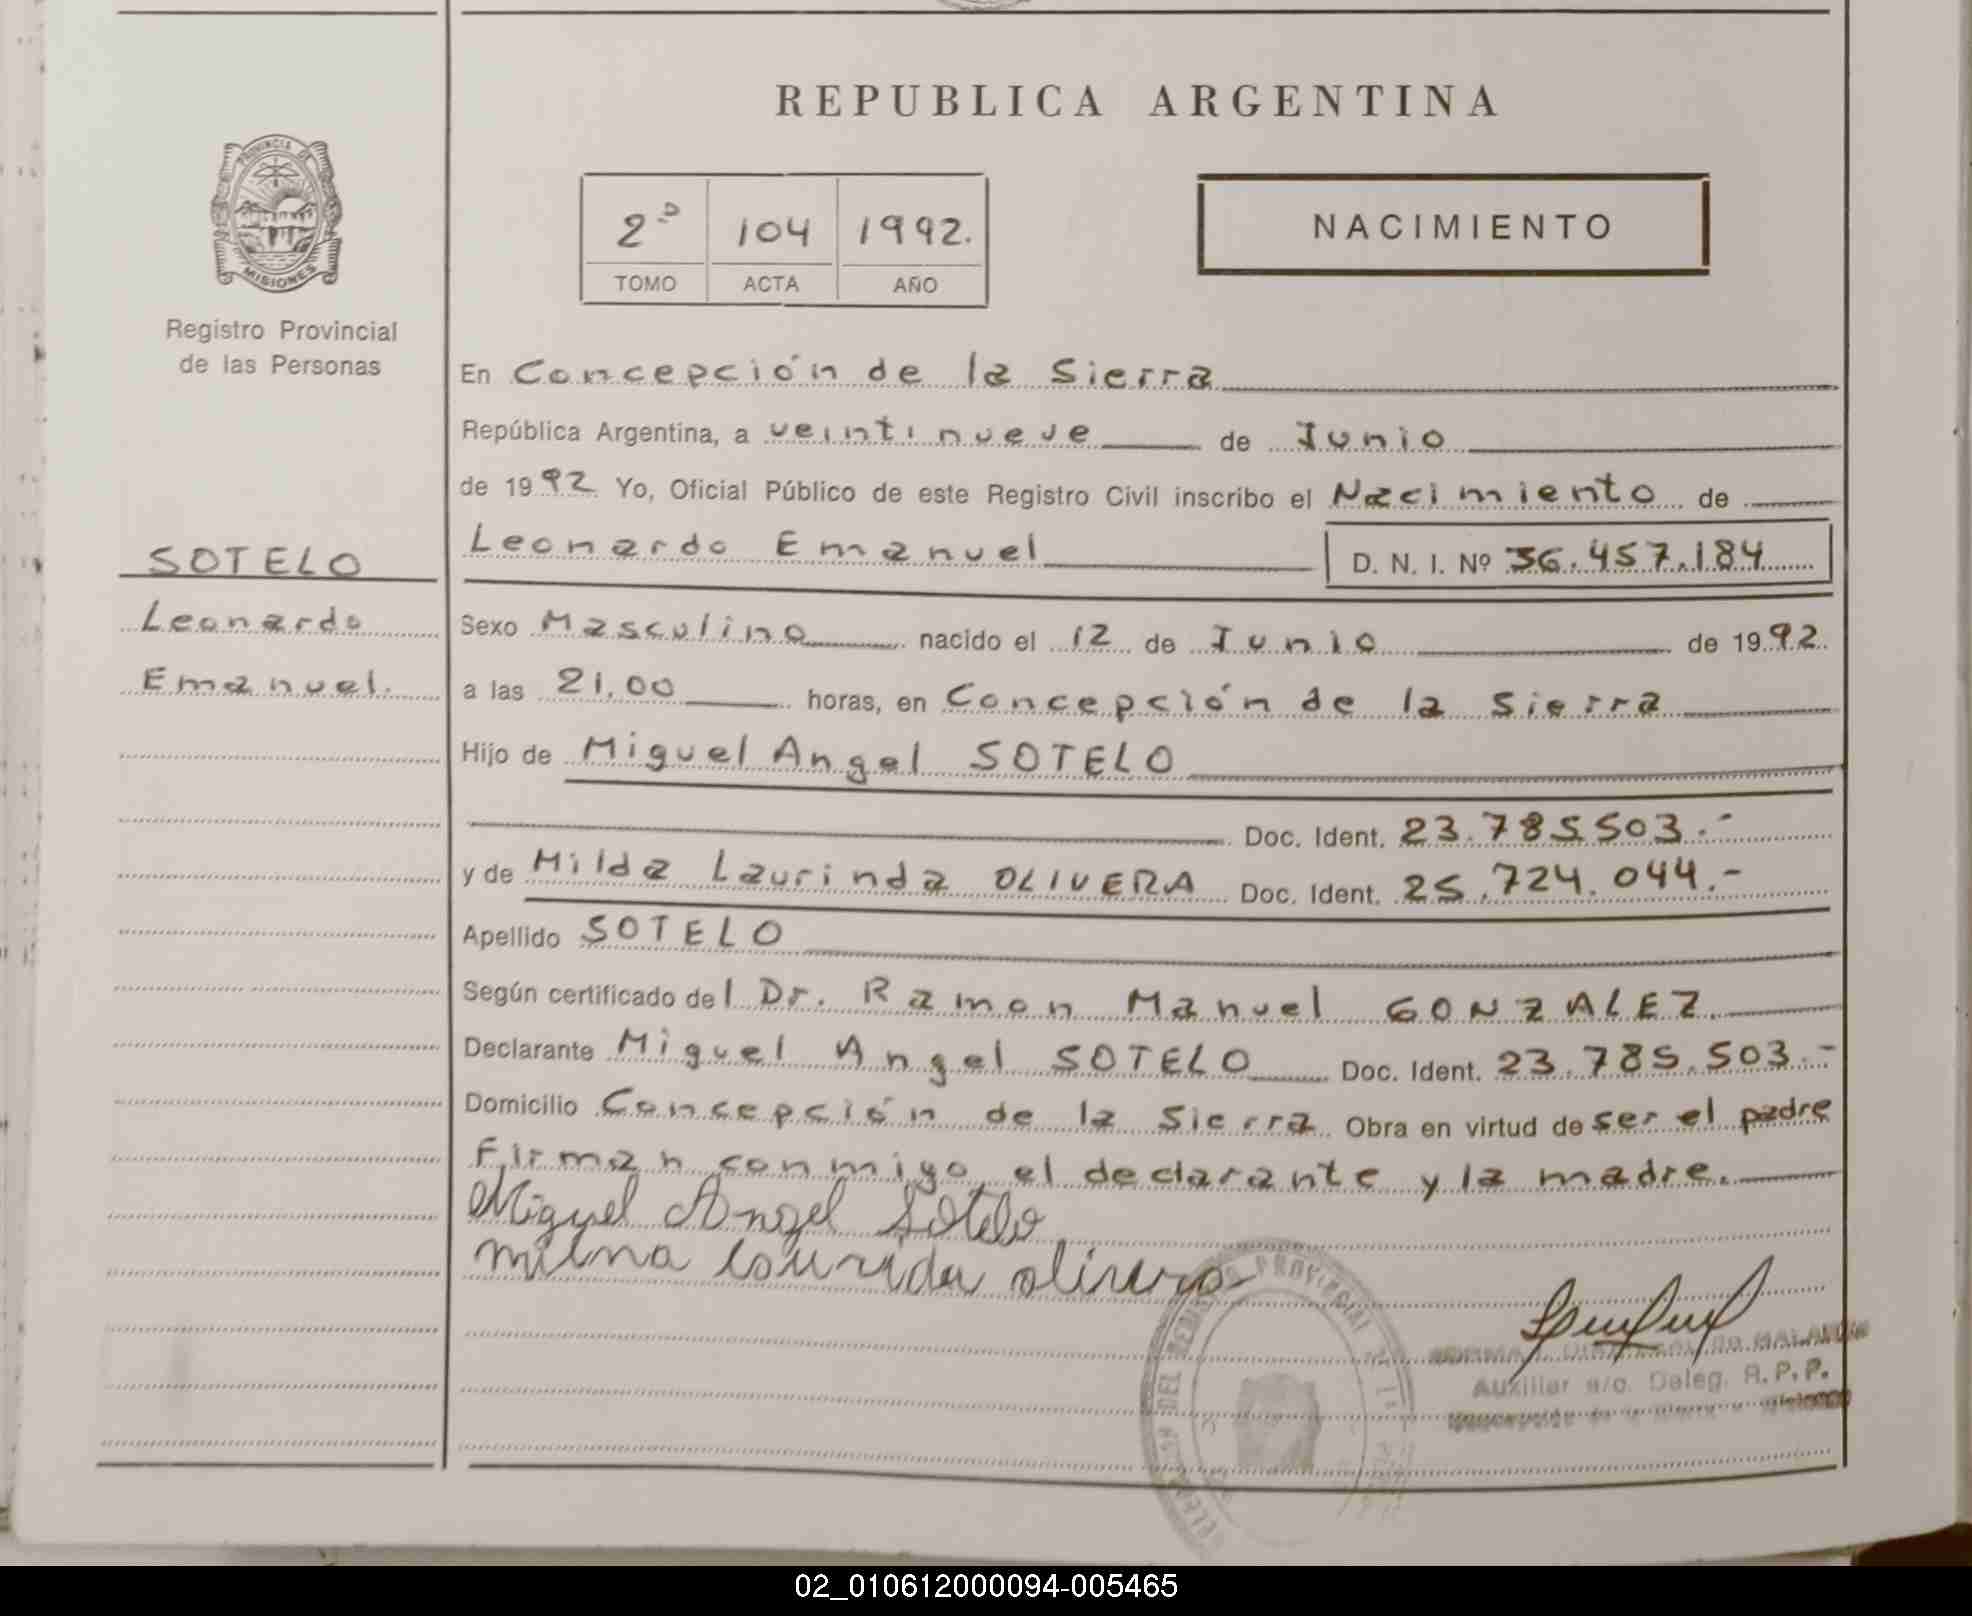 REPUBLICA ARGENTINA
PROVINCIA DE
MISIONES
Registro Provincial
de las Personas
2º 104 1992.
TOMO ACTA AÑO
NACIMIENTO
En Concepción de la Sierra
República Argentina, a veintinueve de Junio
de 1992 Yo, Oficial Público de este Registro Civil inscribo el Nacimiento de
SOTELO
Leonardo
Emanuel.
Leonardo Emanuel D. N. I. Nº 36.457.184
Sexo Masculino nacido el 12 de Junio de 1992.
a las 21.00 horas, en Concepción de la Sierra
Hijo de Miguel Angel SOTELO
Doc. Ident. 23.785503.-
y de Milda Laurinda OLIVERA Doc. Ident. 25.724.044.-
Apellido SOTELO
Según certificado del Dr. Ramon Manuel GONZALEZ.
Declarante Miguel Angel SOTELO Doc. Ident. 23.785.503.-
Domicilio Concepción de la Sierra Obra en virtud de ser el padre
Firman conmigo el declarante y la madre.
Miguel Angel Sotelo
DEL REGISTRO PROVINCIAL DE
Auxiliar a/c. Deleg. R.P.P.
02_010612000094-005465